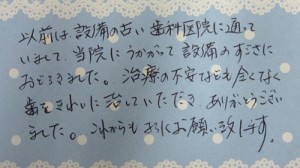 以前は、設備の古い歯科医院に通って
いまして、当院にうかがって設備のすごさに
おどろきました。治療の不安なども全くなく
歯をきれいに治していただき、ありがとうござい
ました。これからもよろしくお願い致します。